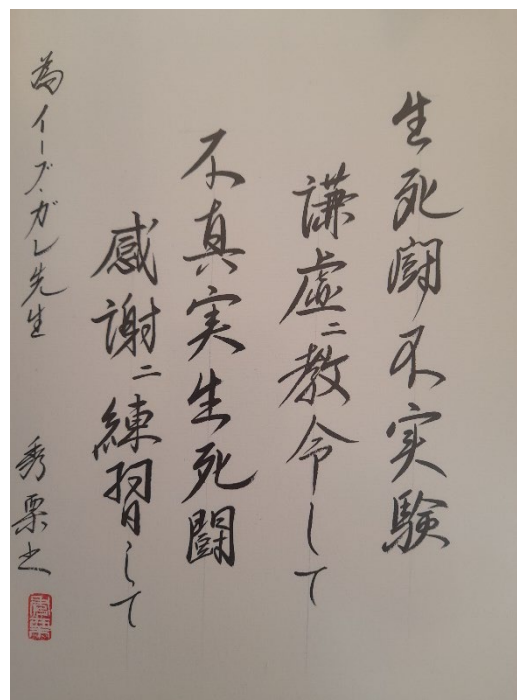 生死闘不実験
謙虚ニ教令して
不真実生死闘
感謝ニ練習して
為イーブ・ガレ先生
秀栗之